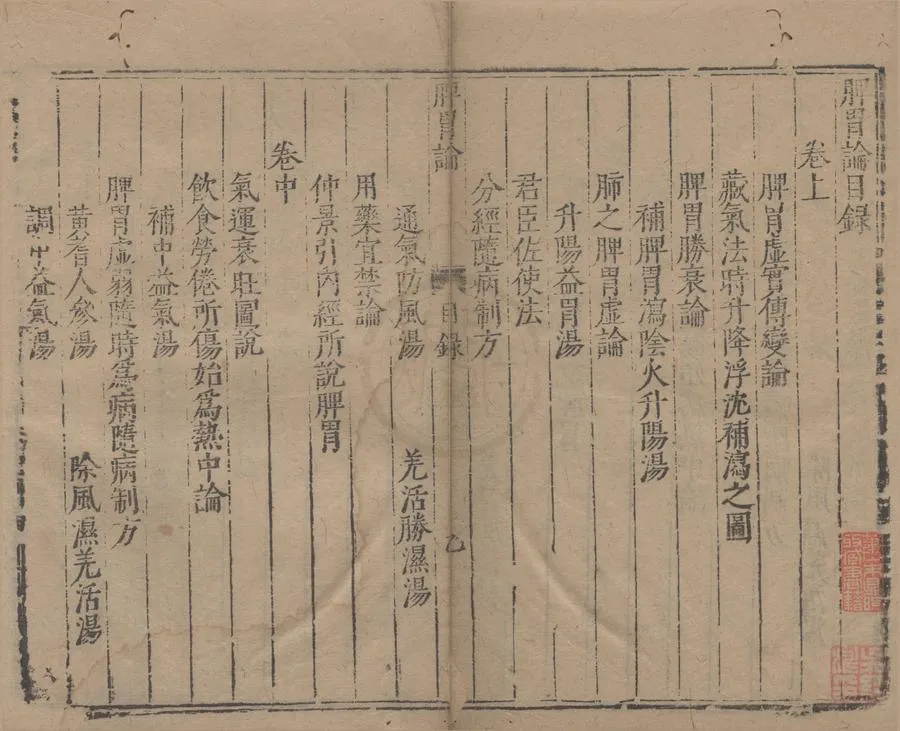 脾胃論目錄
卷上
脾胃虛實傳變論
藏氣法時升降浮沈補瀉之圖
脾胃勝衰論
補脾胃瀉陰火升陽湯
肺之脾胃虛論
升陽益胃湯
君臣佐使法
分經隨病制方
脾胃論
目錄
乙
通氣防風湯
羌活勝濕湯
用藥宜禁論
仲景引內經所說脾胃
卷中
氣運衰旺圖說
飲食勞倦所傷始為熱中論
補中益氣湯
脾胃虛弱隨時為病隨病制方
黄芪人參湯
除風濕羌活湯
調中益氣湯